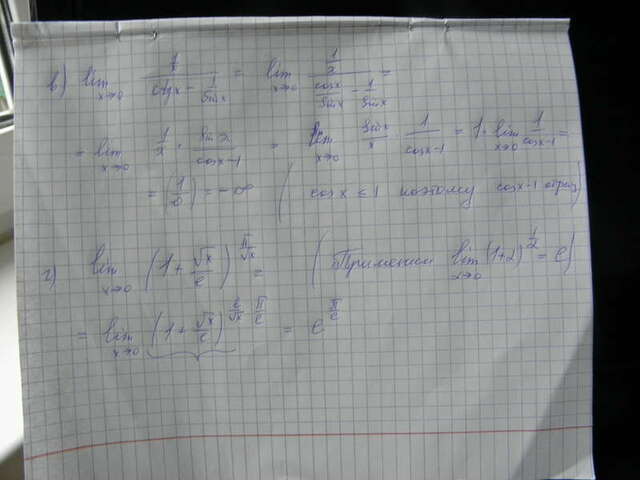 в) lim x→0 (1/x)/(ctgx − 1/sinx) = lim x→0 (1/x)/(cosx/sinx − 1/sinx) =
= lim x→0 1/x · sinx/(cosx−1) = lim x→0 sinx/x · 1/(cosx−1) = 1· lim x→0 1/(cosx−1) =
= (1/0) = −∞ ( cosx ≤ 1 поэтому cosx−1 отриц)
г) lim x→0 (1+ √x/e)^(π/√x) = (Применим lim α→0 (1+α)^(1/α) = e)
= lim x→0 (1+ √x/e)^(e/√x · π/e) = e^(π/e)